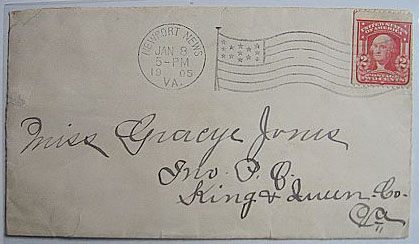 NEWPORT NEWS
JAN 8
5-PM
1905
VA.
UNITED STATES
OF AMERICA
2 2
POSTAGE
TWO CENTS
Miss Gracye Jones
Jno. P. O.
King & Queen Co.
Va